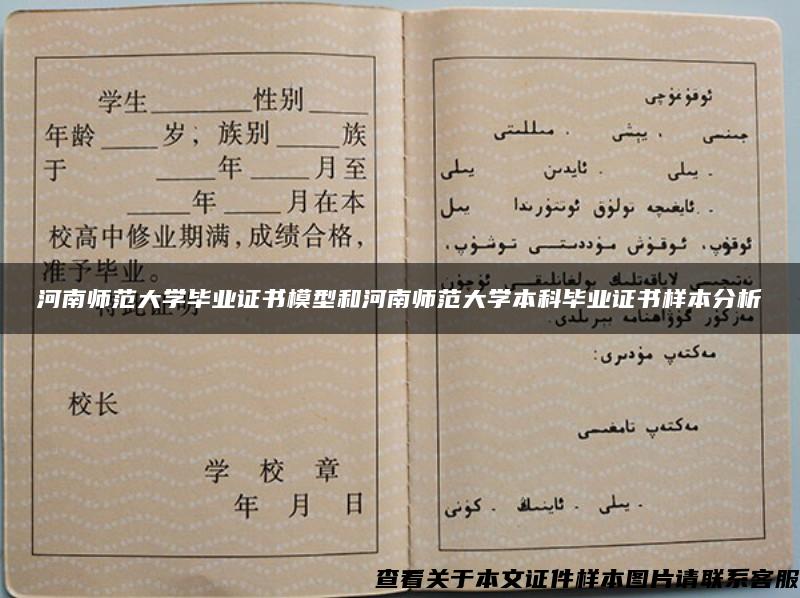 学生______性别____
年龄____岁；族别____族
于 ____年____月至
____年____月在本
校高中修业期满，成绩合格，
准予毕业。
特此证明
校长
学 校 章
年 月 日
ئوقۇغۇچى
جىنسى . يېشى . مىللىتى
. يىلى . ئايدىن يىلى
. ئايغىچە تولۇق ئوتتۇرىدا يىل
ئوقۇپ، ئوقۇش مۇددىتى توشۇپ،
نەتىجىسى لاياقەتلىك بولغانلىقى ئۈچۈن
مەزكۇر گۇۋاھنامە بېرىلدى.
مەكتەپ مۇدىرى:
مەكتەپ تامغىسى
. يىلى . ئاينىڭ . كۈنى
河南师范大学毕业证书模型和河南师范大学本科毕业证书样本分析
查看关于本文证件样本图片请联系客服